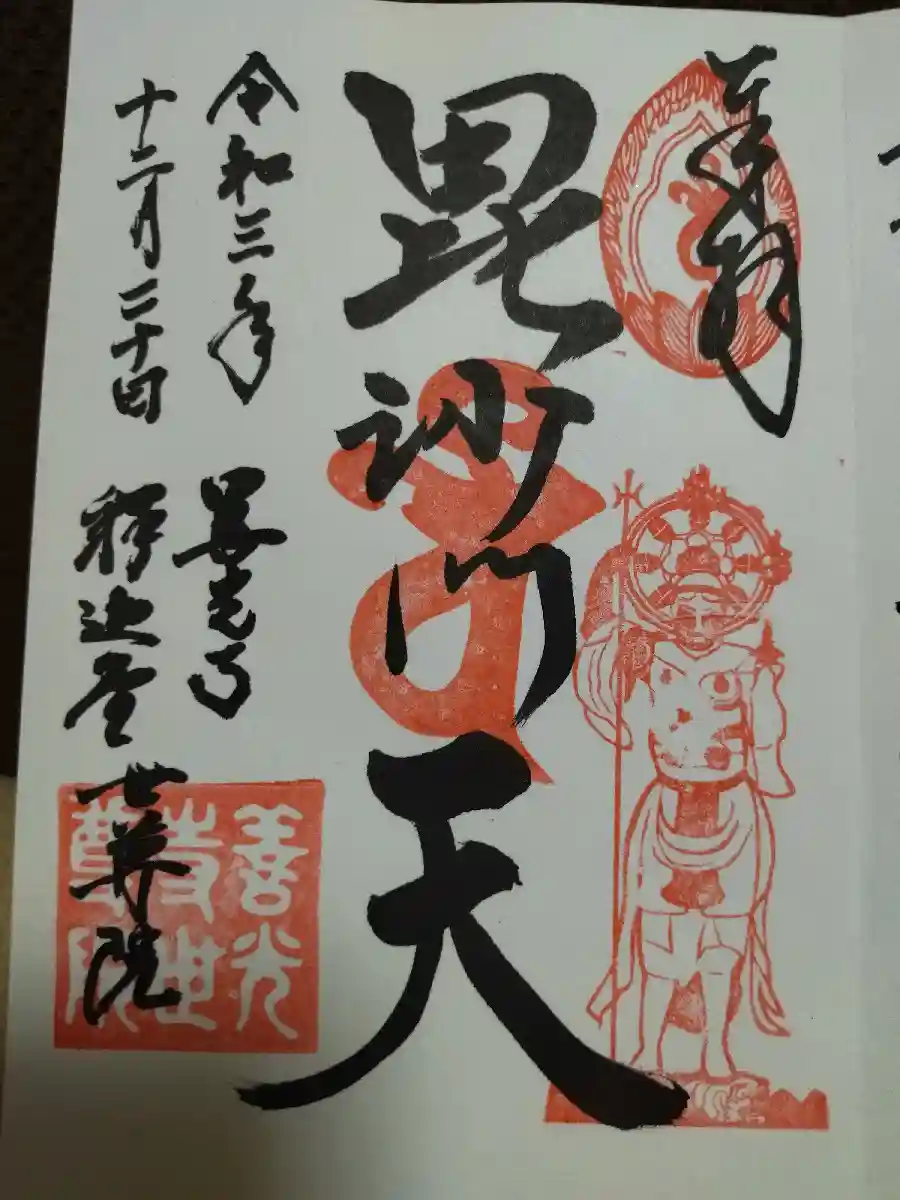 奉拝
毘沙門天
令和三年
十二月二十日
善光寺
釈迦堂 世尊院
善光
寺世
尊院